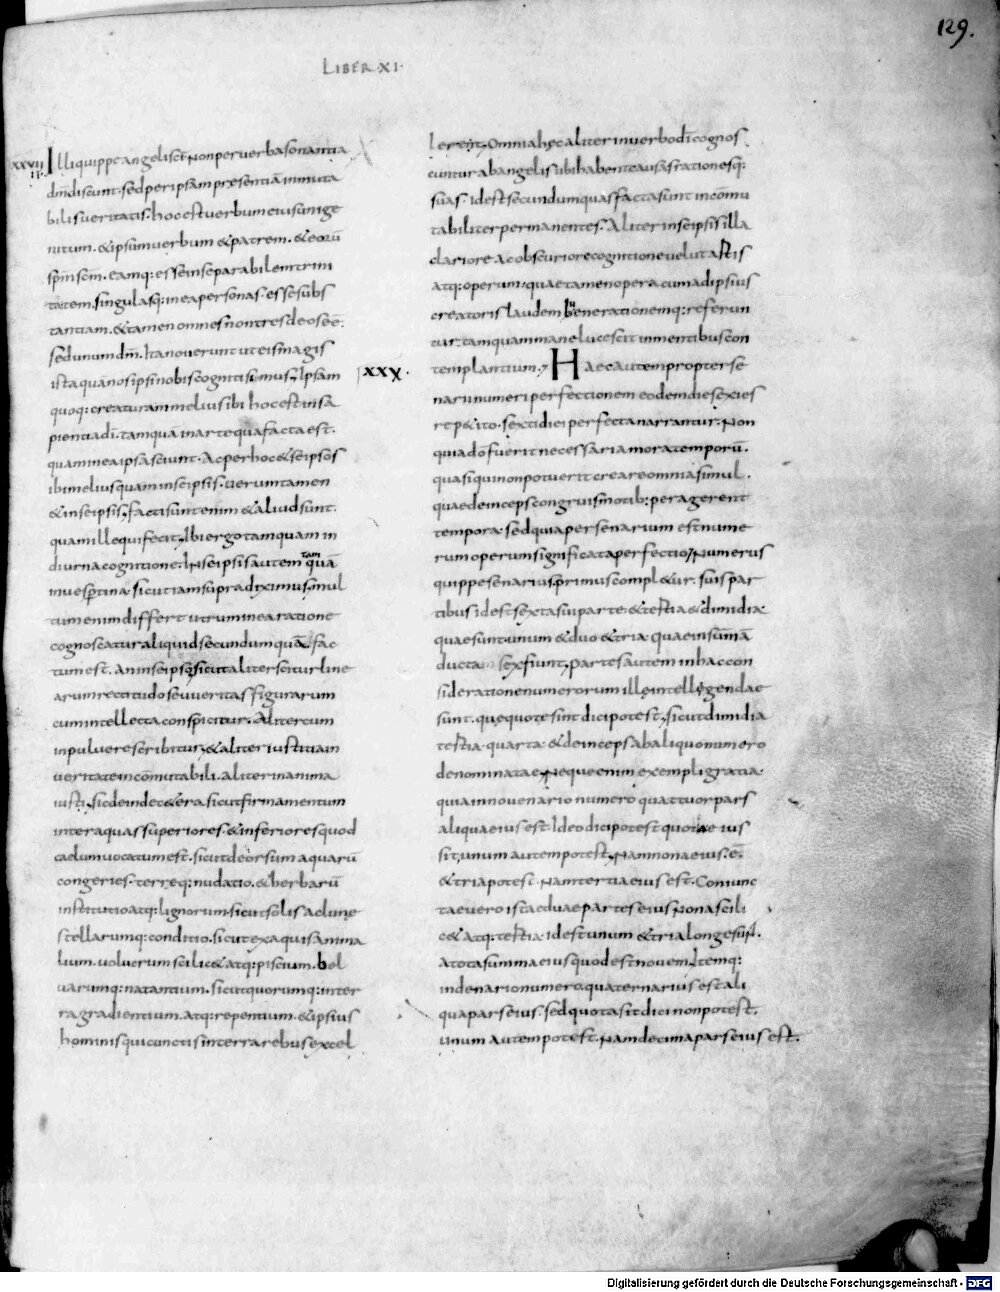 129.
LIBER·XI·
XXVIIII Illi quippe angeli sc̅i non per verba sonantia
dm̅ discunt. sed per ipsam presentiā inmuta
bilis veritatis. hoc est verbum eius unige
nitum. & ipsum verbum & patrem. & eorū
spm̅ scm̅. eamq: esse inseparabilem trini
tatem. singulasq: in ea personas. esse subs
tantiam. & tamen omnes non tres deos eē.
sed unum dm̅. Ita noverunt ut eis magis
ista quā nos ipsi nobis cogniti simus, Ipsam
quoq: creaturam melius ibi hoc est in sa
pientia di̅. tamquā in arte qua facta est.
quam in ea ipsa sciunt. Ac per hoc & se ipsos
ibi melius quam in se ipsis. verum tamen
& in se ipsis, facti sunt enim & aliud sunt.
quam ille qui fecit, Ibi ergo tamquam in
diurna cognitione. In se ipsis autem tam quā
in vespertina. sicut iam supra diximus, mul
tum enim differt utrum in ea ratione
cognoscatur aliquid secundum quā fac
tum est. an in se ipso, sicut aliter scitur line
arum rectitudo seu veritas figurarum
cum intellecta conspicitur. Aliter cum
in pulvere scribitur, & aliter iustitia in
veritate incōmutabili. aliter in anima
iusti, sic deinde c&era sicut firmamentum
inter aquas superiores. & inferiores quod
caelum vocatum est. sicut deorsum aquarū
congeries. terreq: nudatio. & herbarū
institutio atq: lignorum. sicut solis ac lune
stellarumq: conditio. sicut ex aquis anima
lium. volucrum scilic& atq: piscium. bel
uarumq: natantium. sicut quorumq: inter
ra gradientium. atq: repentium. & ipsius
hominis qui cunctis in terra rebus excel
leret, Omnia hęc aliter in verbo di̅ cognos
cuntur ab angelis ubi habent causas rationesq:
suas. Id est secundum quas facta sunt incōmu
tabiliter permanentes. Aliter in se ipsis illa
clariore ac obscuriore cognitione velut artis
atq: operum. quae tamen opera cum ad ipsius
creatoris laudem venerationemq: referun
tur. tamquam mane lucescit in mentibus con
XXX. templantium, Haec autem propter se
narii numeri perfectionem eodem die sexies
rep&ito. sex diei perfecta narrantur. Non
quia do̅ fuerit necessaria mora temporū.
quasi qui non potuerit creare omnia simul.
quae deinceps congruis motib: peragerent
tempora. sed quia per senarium est nume
rum operum significata perfectio, Numerus
quippe senarius primus compl&ur. suis par
tibus id est sexta sui parte. & tertia & dimidia
quae sunt. unum & duo & tria quae in summā
ducta sex fiunt, partes autem in hac con
sideratione numerorum ille intellegendae
sunt. quę quote sint dici potest, sicut dimidia
tertia quarta & deinceps ab aliquo numero
denominatae, Neque enim exempli gratia.
quia in novenario numero quattuor pars
aliqua eius est. Ideo dici potest quota eius
sit, unum autem potest, Nam nona eius. ē.
& tria potest. Nam tertia eius est. Coniunc
tae vero istae duae partes eius Nona scili
c& atq: tertia. id est unum & tria longe sunt.
a tota summa eius quod est novem. Itemq:
in denario numero. quaternarius est ali
qua pars eius. sed quota sit dici non potest.
unum autem potest. Nam decima pars eius est.
Digitalisierung gefördert durch die Deutsche Forschungsgemeinschaft - DFG